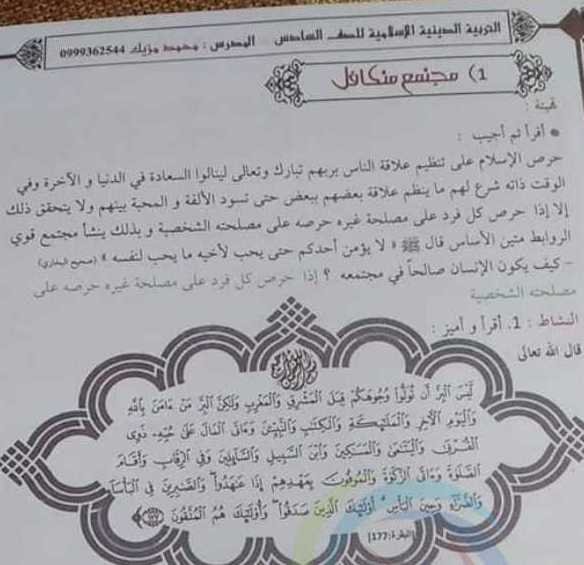 التربية الدينية الإسلامية للصف السادس المدرس : محمد مزيك 0999362544
1) مجتمع متكافل
تهيئة :
• أقرأ ثم أجيب :
حرص الإسلام على تنظيم علاقة الناس بربهم تبارك وتعالى لينالوا السعادة في الدنيا و الآخرة وفي
الوقت ذاته شرع لهم ما ينظم علاقة بعضهم ببعض حتى تسود الألفة و المحبة بينهم ولا يتحقق ذلك
إلا إذا حرص كل فرد على مصلحة غيره حرصه على مصلحته الشخصية و بذلك ينشأ مجتمع قوي
الروابط متين الأساس قال ﷺ « لا يؤمن أحدكم حتى يحب لأخيه ما يحب لنفسه » (صحيح البخاري)
- كيف يكون الإنسان صالحاً في مجتمعه ؟ إذا حرص كل فرد على مصلحة غيره حرصه على
مصلحته الشخصية
النشاط : 1. أقرأ و أميز :
قال الله تعالى
بسم الله الرحمن الرحيم
لَّيْسَ ٱلْبِرَّ أَن تُوَلُّوا۟ وُجُوهَكُمْ قِبَلَ ٱلْمَشْرِقِ وَٱلْمَغْرِبِ وَلَٰكِنَّ ٱلْبِرَّ مَنْ ءَامَنَ بِٱللَّهِ
وَٱلْيَوْمِ ٱلْءَاخِرِ وَٱلْمَلَٰٓئِكَةِ وَٱلْكِتَٰبِ وَٱلنَّبِيِّۦنَ وَءَاتَى ٱلْمَالَ عَلَىٰ حُبِّهِۦ ذَوِى
ٱلْقُرْبَىٰ وَٱلْيَتَٰمَىٰ وَٱلْمَسَٰكِينَ وَٱبْنَ ٱلسَّبِيلِ وَٱلسَّآئِلِينَ وَفِى ٱلرِّقَابِ وَأَقَامَ
ٱلصَّلَوٰةَ وَءَاتَى ٱلزَّكَوٰةَ وَٱلْمُوفُونَ بِعَهْدِهِمْ إِذَا عَٰهَدُوا۟ وَٱلصَّٰبِرِينَ فِى ٱلْبَأْسَآءِ
وَٱلضَّرَّآءِ وَحِينَ ٱلْبَأْسِ أُو۟لَٰٓئِكَ ٱلَّذِينَ صَدَقُوا۟ وَأُو۟لَٰٓئِكَ هُمُ ٱلْمُتَّقُونَ ١٧٧
[البقرة:177]